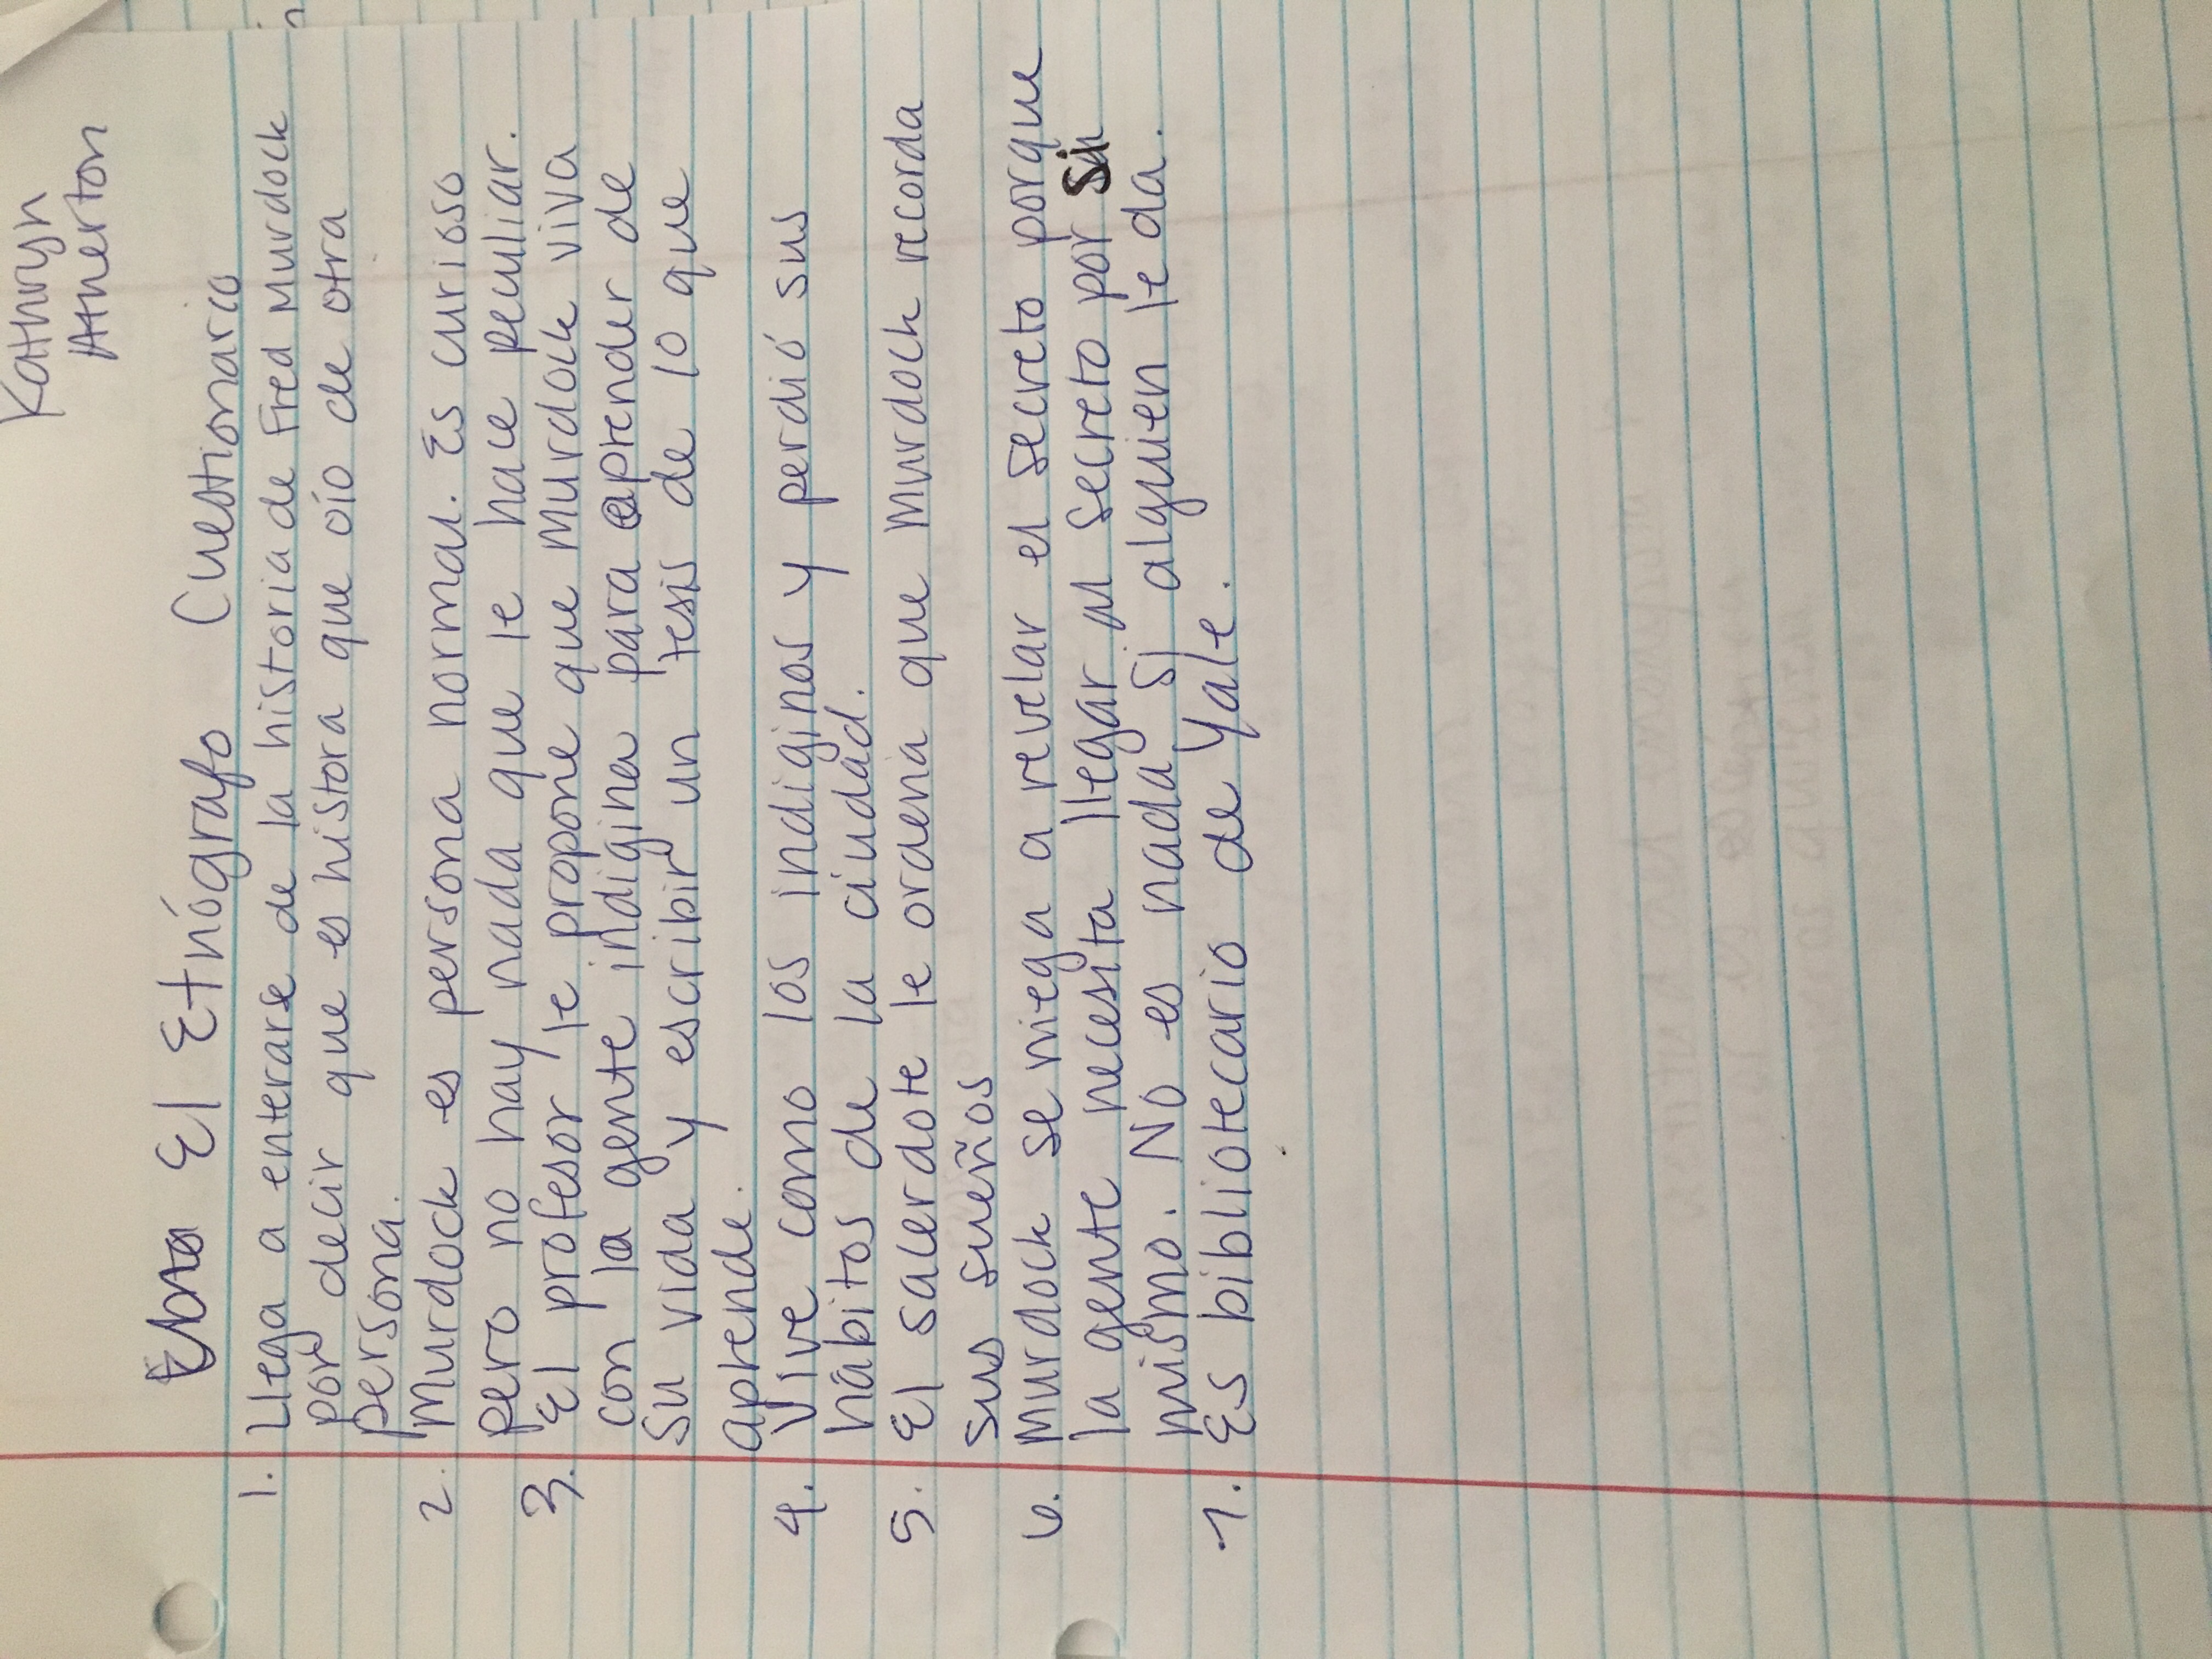 Kathryn
Atherton
El Etnógrafo Cuestionario
1. Llega a enterarse de la historia de Fred Murdock
por decir que es histora que oío de otra
persona.
2. Murdock es persona normal. Es curioso
pero no hay nada que le hace peculiar.
3. El profesor le propone que Murdock viva
con la gente indigina para aprender de
su vida y escribir un tesis de lo que
aprende.
4. Vive como los indiginos y perdió sus
hábitos de la ciudad.
5. El sacerdote le ordena que Murdock recorda
sus sueños
6. Murdock se niega a revelar el secreto porque
la gente necesita llegar al secreto por si
mismo. No es nada si alguien le da.
7. Es bibliotecario de Yale.